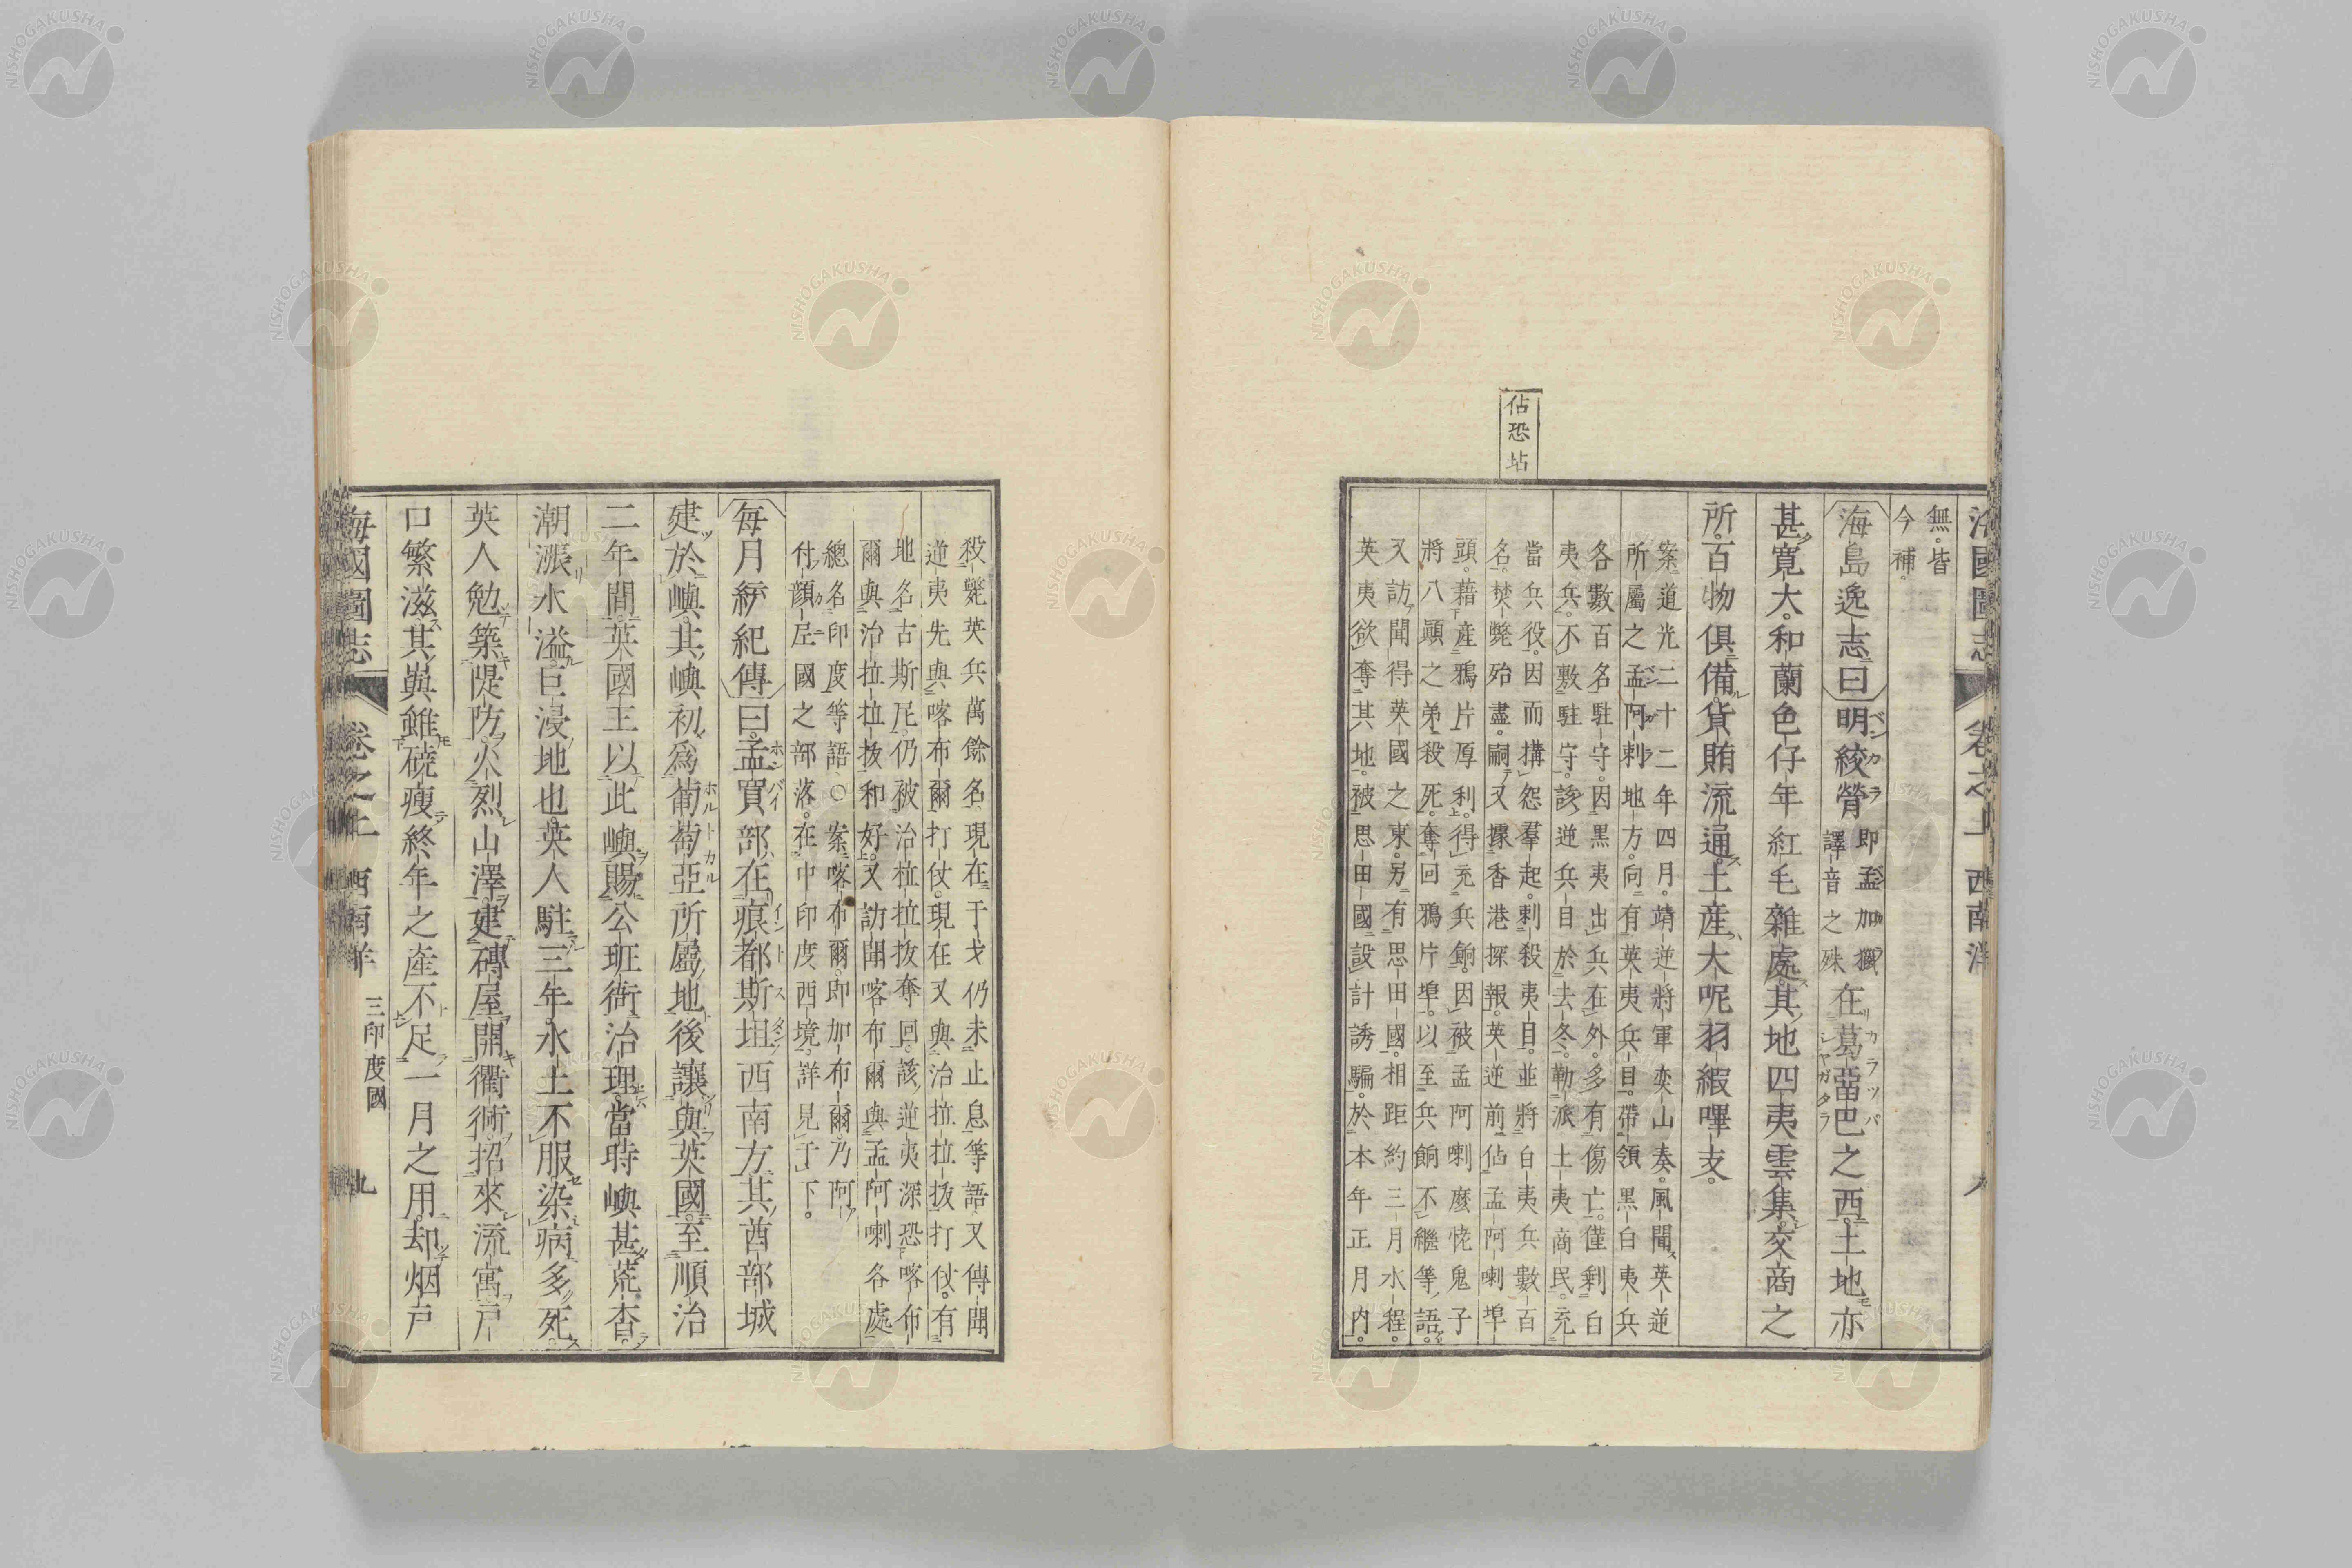 海國圖志 卷之上 西南洋
無。皆
今補。
海島逸志曰明絞䏁即孟加臘譯音之殊在葛𠺕巴之西。土地亦
甚寬大。和蘭色仔年紅毛雜處。其地四夷雲集。交商之
所。百物俱備。貨賄流通。土産大呢羽緞嗶支。
案道光二十二年四月。靖逆將軍奕山奏。風聞英逆
所屬之孟阿剌地方。向有英夷兵目。帶領黑白夷兵
各數百名駐守。因黑夷出兵在外。多有傷亡。僅剩白
夷兵。不敷駐守。該逆兵目於去冬。勒派土夷商民。充
當兵役。因而搆怨羣起。刺殺夷目。並將白夷兵數百
名。焚斃殆盡。嗣又據香港探報。英逆前佔孟阿喇埠
佔恐坫
頭。藉産鴉片厚利。得充兵餉。因被孟阿喇麼恅鬼子
將八顚之弟殺死。奪回鴉片埠。以至兵餉不繼等語。
又訪聞得英國之東。另有思田國。相距約三月水程。
英夷欲奪其地。被思田國設計誘騙。於本年正月內。
殺斃英兵萬餘名。現在于戈仍未止息等語。又傳聞
逆夷先與喀布爾打仗。現在又與治拉拉拔打仗。有
地名古斯尼。仍被治拉拉拔奪回。該逆夷深恐喀布
爾與治拉拉拔和好。又訪聞喀布爾與孟阿喇各處
總名印度等語。○案喀布爾。即加布爾。乃阿
付顏尼國之部落。在中印度西境。詳見于下。
每月統紀傳曰。孟買部在痕都斯坦西南方。其酋部城
建於嶼。其嶼初爲葡萄亞所屬地。後讓與英國。至順治
二年間。英國王以此嶼賜公班衙治理。當時嶼甚荒杳。
潮漲水溢。巨浸地也。英人駐三年。水土不服。染病多死。
英人勉築隄防。火烈山澤。建磚屋。開衢術。招來流寓戸
口繁滋。其與雖磽瘦。終年之產。不足一月之用。却烟戸
海國圖志 卷之上 西南洋 三印度國 九